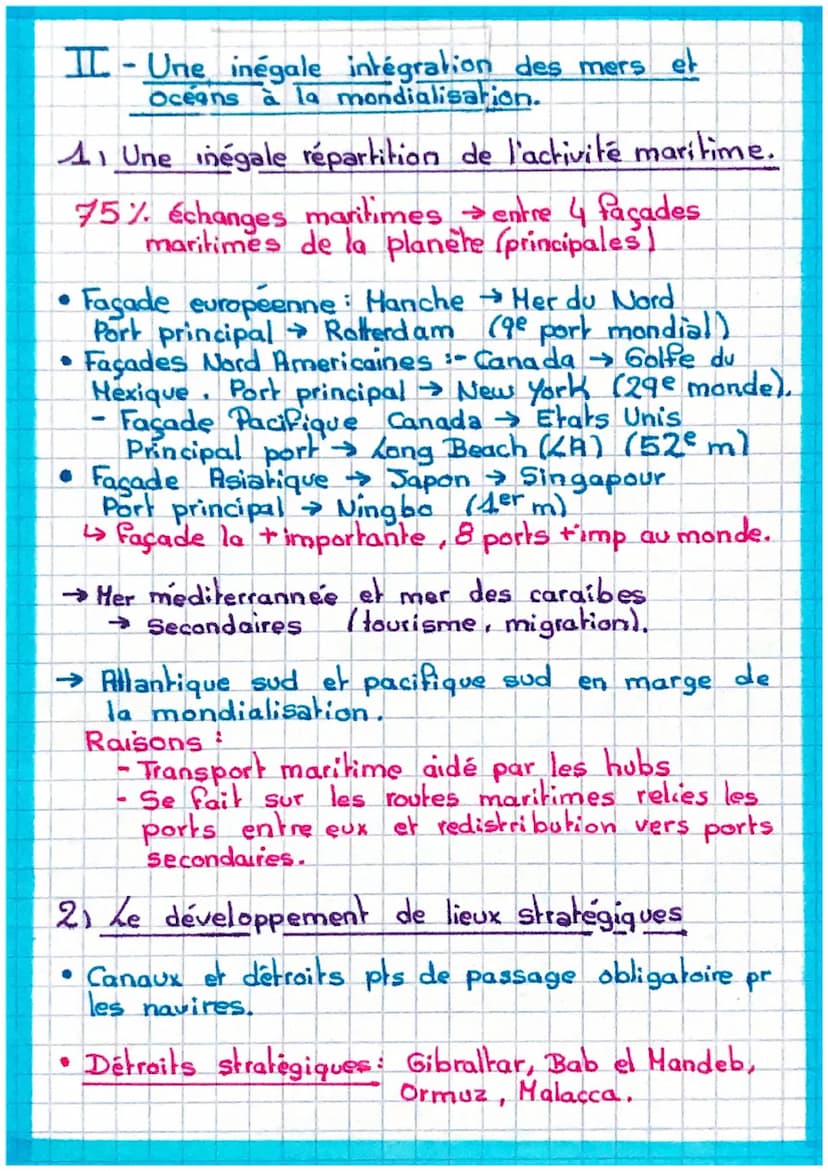 II - Une inégale intégration des mers et
océans à la mondialisation.
1) Une inégale répartition de l'activité maritime.
75% échanges maritimes → entre 4 façades
maritimes de la planète (principales)
• Façade européenne : Manche → Mer du Nord
Port principal → Rotterdam (9e port mondial)
• Façades Nord Americaines :- Canada → Golfe du
Mexique. Port principal → New York (29e monde).
- Façade Pacifique Canada → Etats Unis
Principal port → Long Beach (LA) (52e m)
• Façade Asiatique → Japon → Singapour
Port principal → Ningbo (1er m)
↳ façade la + importante, 8 ports + imp au monde.
→ Mer méditerrannée et mer des caraîbes
→ Secondaires (tourisme, migration).
→ Atlantique sud et pacifique sud en marge de
la mondialisation.
Raisons :
- Transport maritime aidé par les hubs
- Se fait sur les routes maritimes relies les
ports entre eux et redistribution vers ports
secondaires.
2) Le développement de lieux stratégiques
• Canaux et détroits pts de passage obligatoire pr
les navires.
• Détroits stratégiques : Gibraltar, Bab el Mandeb,
Ormuz, Malacca.